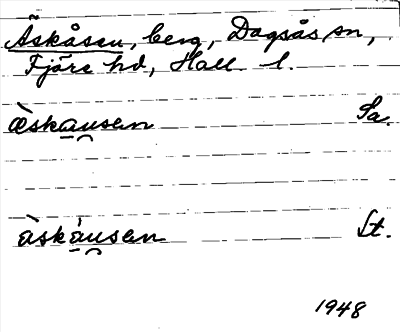 Äskåsen, berg, Dagsås sn,
Fjäre hd, Hall. l.
æ̀skau̯sen Sa.
àskàu̯sen St.
1948